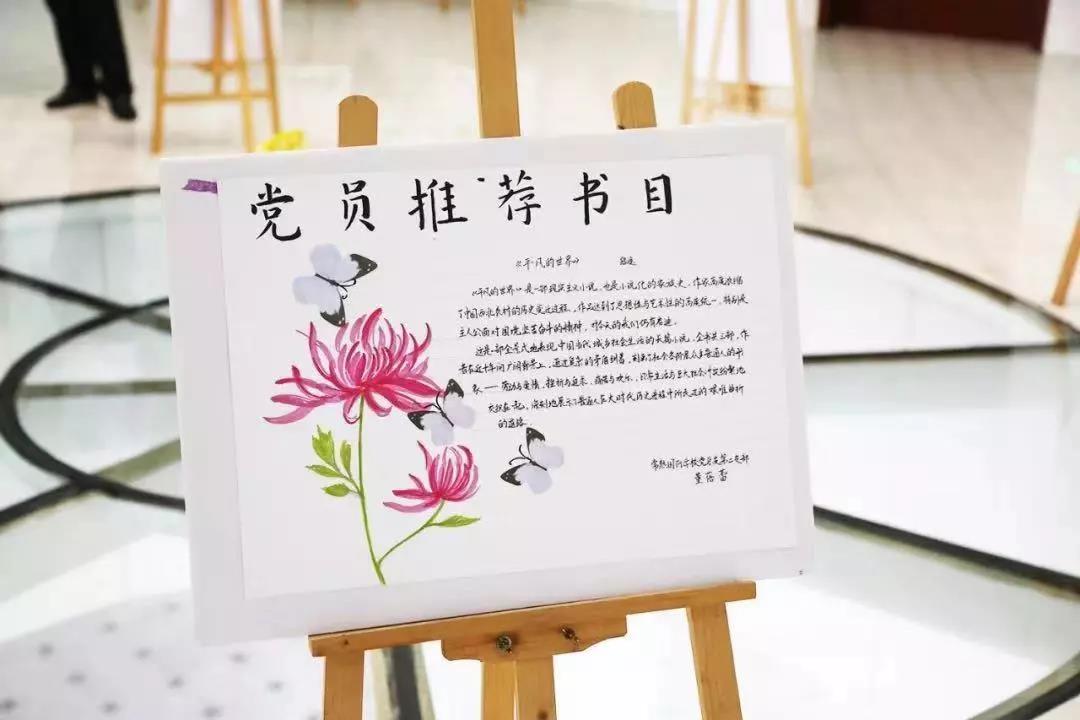 党员推荐书目
《平凡的世界》 路遥
《平凡的世界》是一部现实主义小说,也是小说化的家族史。作家高度浓缩
了中国西北农村的历史变迁过程,作品达到了思想性与艺术性的高度统一,特别是
主人公面对困境艰苦奋斗的精神,对今天的我们仍有启迪。
这是一部全景式地表现中国当代城乡社会生活的长篇小说,全书共三部,作
者在近十年间广阔背景上,通过复杂的矛盾纠葛,刻画了社会各阶层众多普通人的形
象——劳动与爱情,挫折与追求,痛苦与欢乐,日常生活与巨大社会冲突纷繁地
交织在一起,深刻地展示了普通人在大时代历史进程中所走过的艰难曲折
的道路。
常熟国际学校党总支第二支部